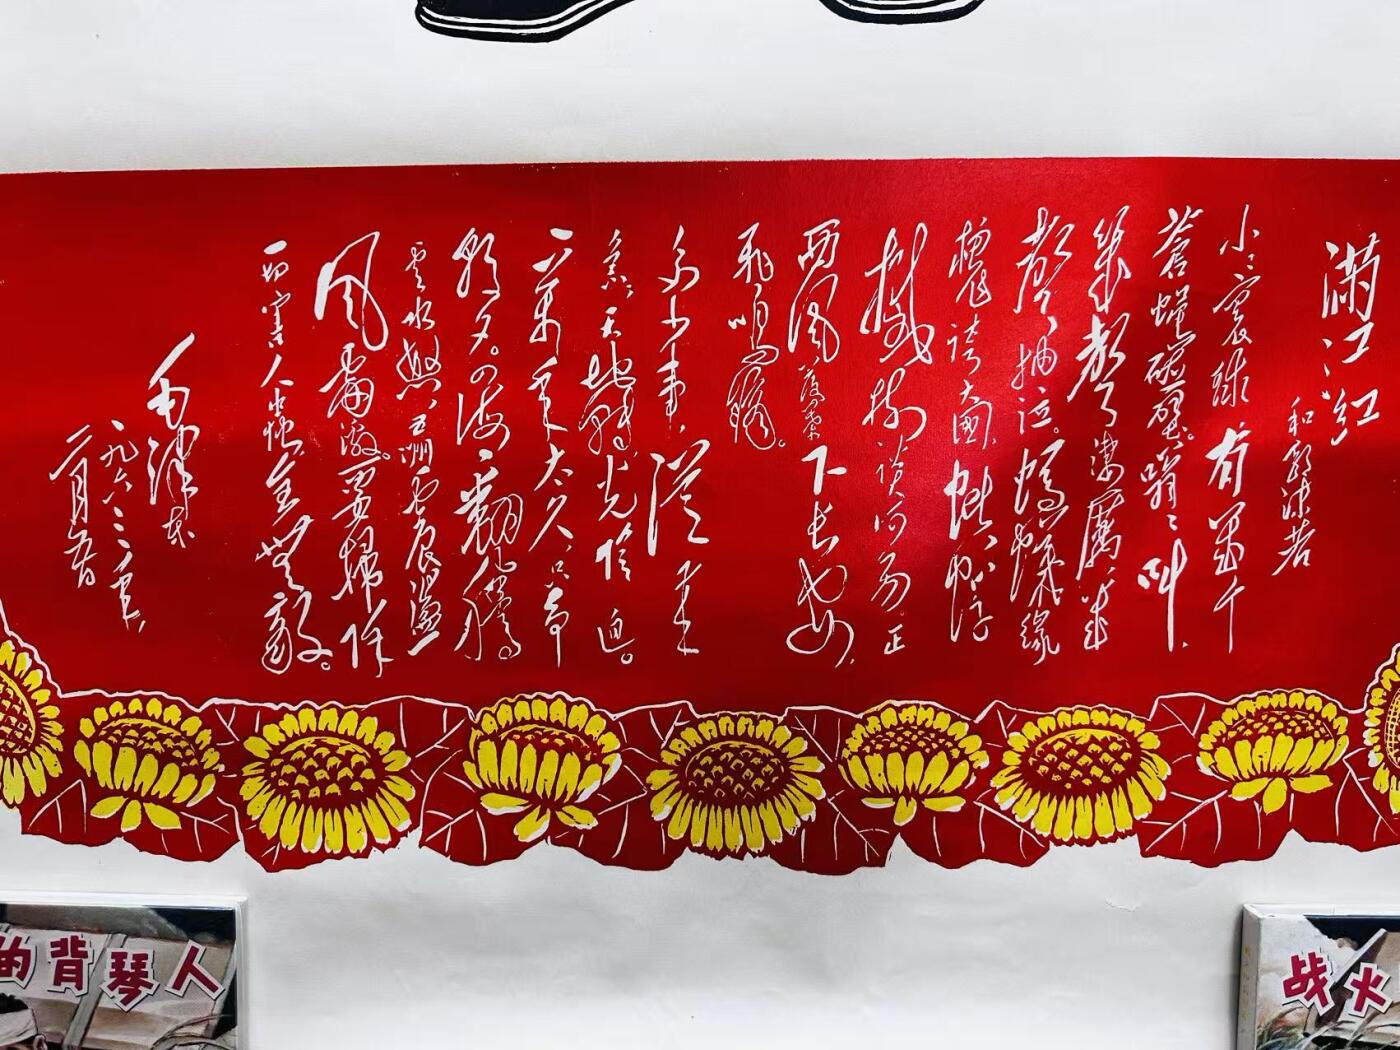 满江红
和郭沫若
小小寰球，有幾个
苍蝇碰壁。嗡嗡叫，
幾声凄厉，幾
声抽泣。蚂蚁缘
槐誇大國，蚍蜉
撼树谈何易。正
西风落叶下长安，
飞鸣镝。
多少事，从来
急；天地转，光阴迫。
一万年太久，只争
朝夕。四海翻腾
云水怒，五洲震荡
风雷激。要扫除
一切害人虫，全无敌。
毛泽东
一九六三年
二月五日
的背琴人
战火